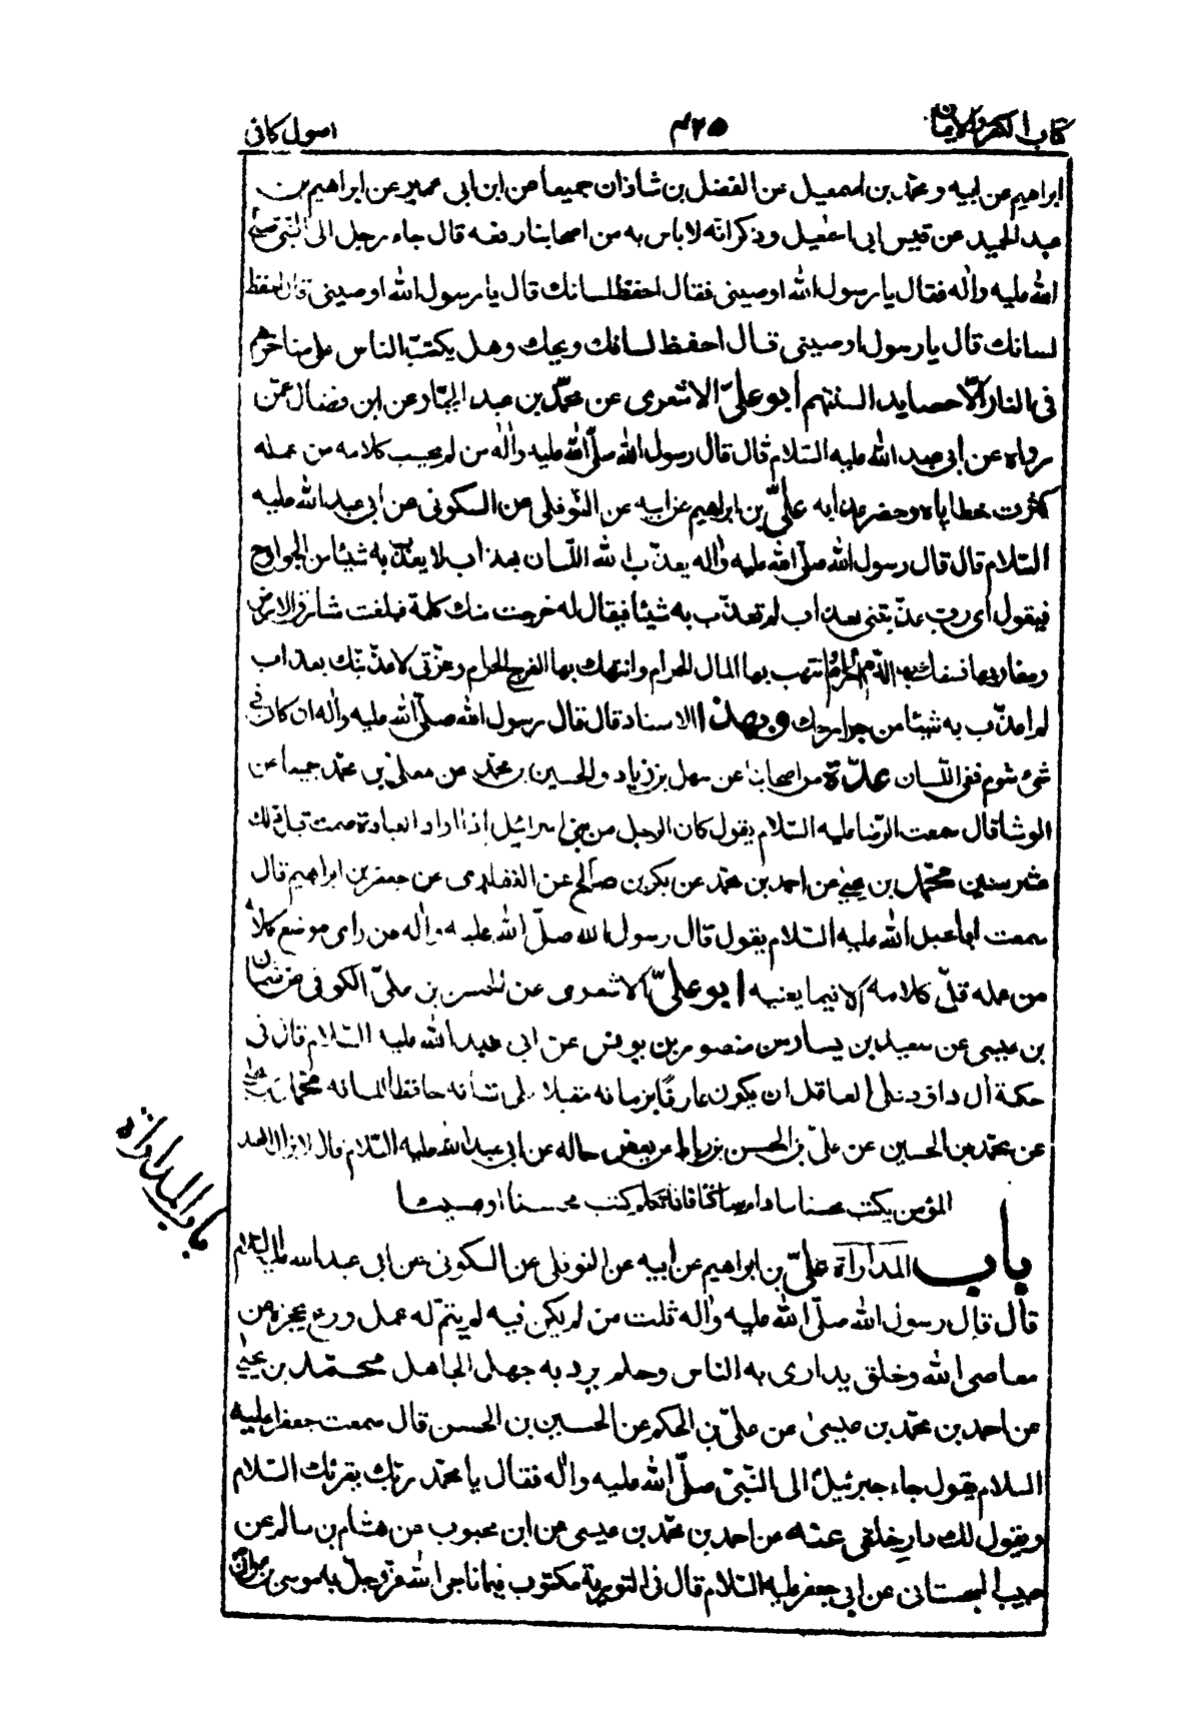 كتاب الكفر والايمان
۴۲۵
اصول كافى
ابراهيم عن ابيه و محمّد بن اسمعيل عن الفضل بن شاذان جميعا عن ابن ابى عمير عن ابراهيم بن
عبد الحميد عن قيس ابى اسمٰعيل وذكر انّه لا باس به من اصحابنا رفعه قال جاء رجل الى النّبى صلّى
الله عليه واٰله فقال يا رسول الله اوصينى فقال احفظ لسانك قال يا رسول الله اوصينى قال احفظ
لسانك قال يا رسول اوصينى قال احفظ لسانك ويحك وهل يكتب الناس على مناخرهم
فى النار الّا حصايد السنتهم ابو علىّ الاشعرى عن محمّد بن عبد الجبّار عن ابن فضال عمّن
رواه عن ابى عبد الله عليه السّلام قال قال رسول الله صلّى الله عليه واٰله من لم يحسب كلامه من عمله
كثرت خطاياه وحضر عذابه علىّ بن ابراهيم عن ابيه عن النّوفلى عن السكونى عن ابى عبد الله عليه
السّلام قال قال رسول الله صلّى الله عليه واٰله يعذّب الله اللّسان بعذاب لا يعذّب به شيئا من الجوارح
فيقول اى ربّ عذّبتنى بعذاب لم تعذّب به شيئا فيقال له خرجت منك كلمة فبلغت مشارق الارض
ومغاربها فسفك بها الدّم الحرام وانتهب بها المال الحرام وانتهك بها الفرج الحرام وعزّتى لاعذّبنّك بعذاب
لم اعذّب به شيئا من جوارحك وبهذا الاسناد قال قال رسول الله صلّى الله عليه واٰله ان كان فى
شىء شوم ففى اللّسان عدّة من اصحابنا عن سهل بن زياد والحسين بن محمّد عن معلّى بن محمّد جميعا عن
الوشا قال سمعت الرّضا عليه السّلام يقول كان الرجل من بنى اسرائيل اذا اراد العبادة صمت قبل ذلك
عشر سنين محمّد بن يحيى عن احمد بن محمّد عن بكر بن صالح عن الغفارى عن جعفر بن ابراهيم قال
سمعت ابا عبد الله عليه السّلام يقول قال رسول الله صلّى الله عليه واٰله من راى موضع كلامه
من عمله قلّ كلامه الا فيما يعنيه ابو علىّ الاشعرى عن الحسن بن علىّ الكوفى عن عثمان
بن عيسى عن سعيد بن يسار عن منصور بن يونس عن ابى عبد الله عليه السّلام قال فى
حكمة اٰل داود على العاقل ان يكون عارفا بزمانه مقبلا على شانه حافظا للسانه محمّد بن يحيى
عن محمّد بن الحسين عن علىّ بن الحسن بن رباط عن بعض رجاله عن ابى عبد الله عليه السّلام قال لا يزال العبد
المؤمن يكتب محسنا ما دام ساكتا فاذا تكلّم كتب محسنا او مسيئا
باب المداراة
باب المداراة علىّ بن ابراهيم عن ابيه عن النوفلى عن السكونى عن ابى عبد الله عليه السّلام
قال قال رسول الله صلّى الله عليه واٰله ثلث من لم يكن فيه لم يتمّ له عمل ورع يحجزه عن
معاصى الله وخلق يدارى به الناس وحلم يرد به جهل الجاهل محمّد بن يحيى
عن احمد بن محمّد بن عيسى عن علىّ بن الحكم عن الحسين بن الحسن قال سمعت جعفرا عليه
السلام يقول جاء جبرئيل الى النّبىّ صلّى الله عليه واٰله فقال يا محمّد ربّك يقرئك السّلام
ويقول لك دار خلقى عنه عن احمد بن محمّد بن عيسى عن ابن محبوب عن هشام بن سالم عن
حبيب السجستانى عن ابى جعفر عليه السّلام قال فى التورية مكتوب فيما ناجى الله عزّ وجلّ به موسى بن عمران